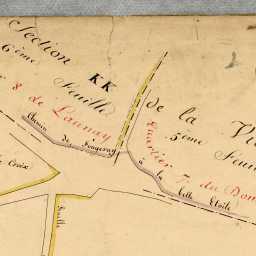 Section KK
6ème Feuille
8 de Launay
Chemin de Fougeray
de la Vi
5ème Feui
Quartier 7 du Dom
à la belle Etoile
Croix